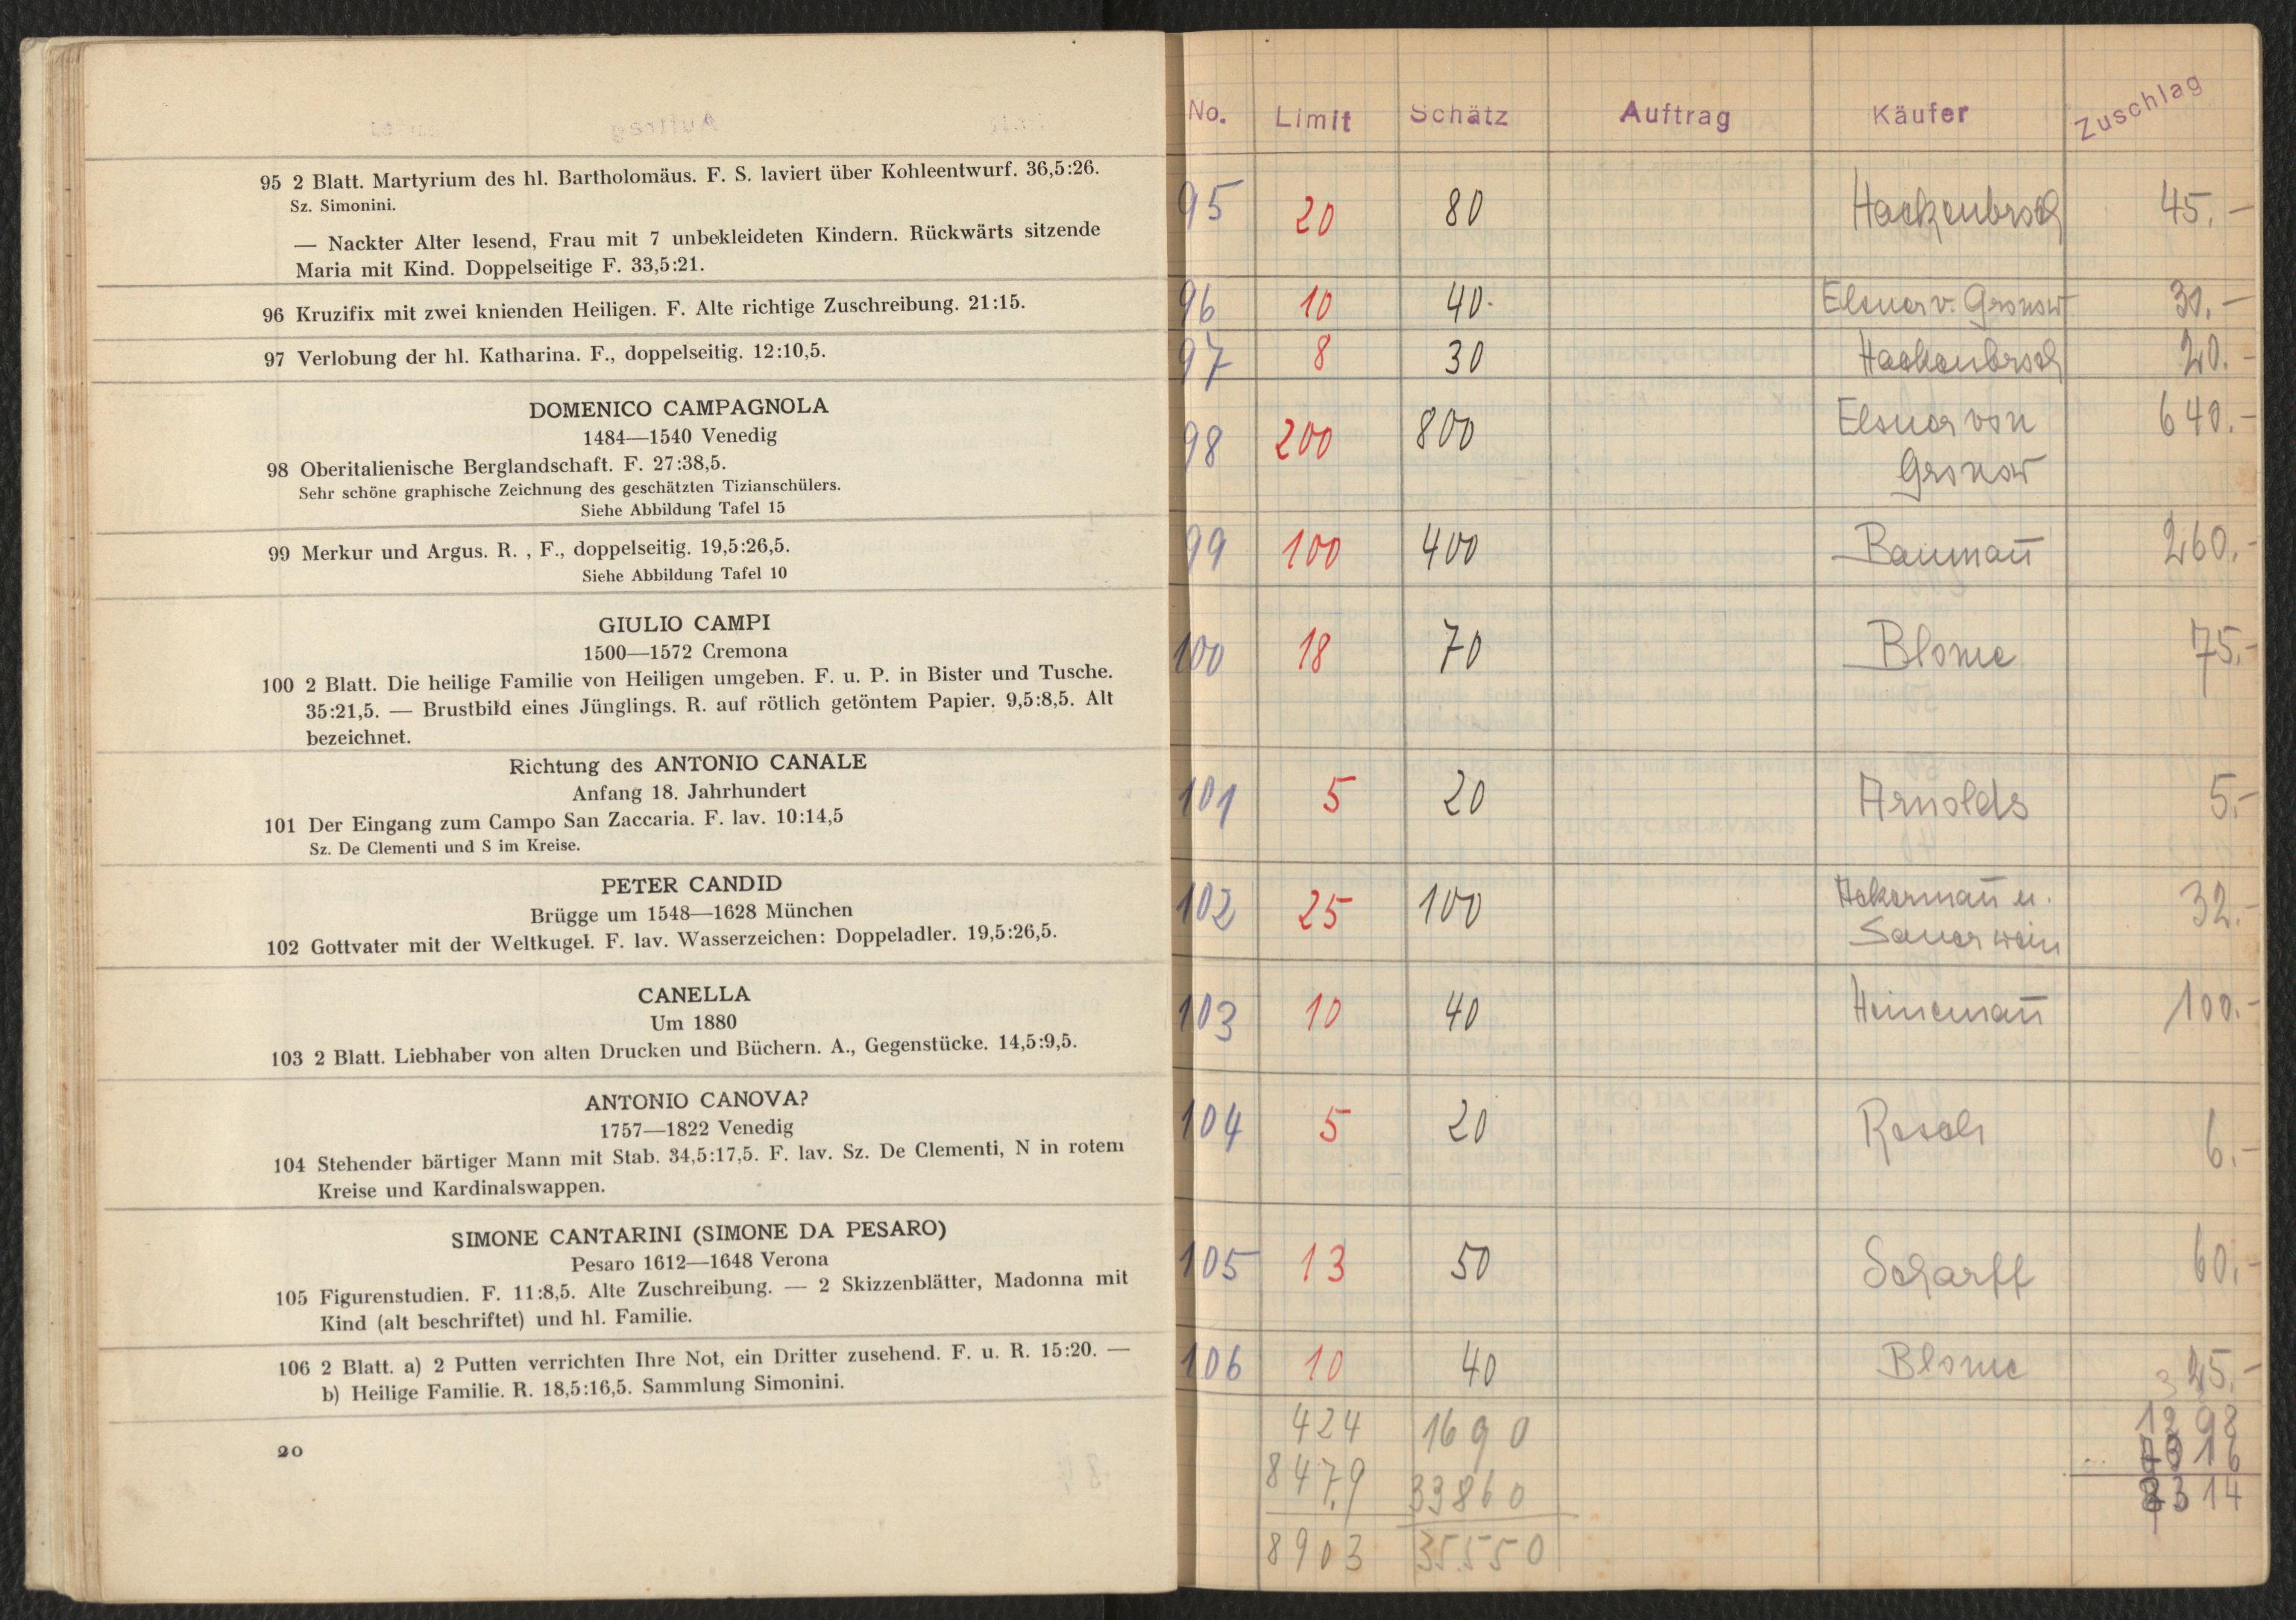 95 2 Blatt. Martyrium des hl. Bartholomäus. F. S. laviert über Kohleentwurf. 36,5:26.
Sz. Simonini.
— Nackter Alter lesend, Frau mit 7 unbekleideten Kindern. Rückwärts sitzende
Maria mit Kind. Doppelseitige F. 33,5:21.
96 Kruzifix mit zwei knienden Heiligen. F. Alte richtige Zuschreibung. 21:15.
97 Verlobung der hl. Katharina. F., doppelseitig. 12:10,5.
DOMENICO CAMPAGNOLA
1484—1540 Venedig
98 Oberitalienische Berglandschaft. F. 27:38,5.
Sehr schöne graphische Zeichnung des geschätzten Tizianschülers.
Siehe Abbildung Tafel 15
99 Merkur und Argus. R. , F., doppelseitig. 19,5:26,5.
Siehe Abbildung Tafel 10
GIULIO CAMPI
1500—1572 Cremona
100 2 Blatt. Die heilige Familie von Heiligen umgeben. F. u. P. in Bister und Tusche.
35:21,5. — Brustbild eines Jünglings. R. auf rötlich getöntem Papier. 9,5:8,5. Alt
bezeichnet.
Richtung des ANTONIO CANALE
Anfang 18. Jahrhundert
101 Der Eingang zum Campo San Zaccaria. F. lav. 10:14,5
Sz. De Clementi und S im Kreise.
PETER CANDID
Brügge um 1548—1628 München
102 Gottvater mit der Weltkugel. F. lav. Wasserzeichen: Doppeladler. 19,5:26,5.
CANELLA
Um 1880
103 2 Blatt. Liebhaber von alten Drucken und Büchern. A., Gegenstücke. 14,5:9,5.
ANTONIO CANOVA?
1757—1822 Venedig
104 Stehender bärtiger Mann mit Stab. 34,5:17,5. F. lav. Sz. De Clementi, N in rotem
Kreise und Kardinalswappen.
SIMONE CANTARINI (SIMONE DA PESARO)
Pesaro 1612—1648 Verona
105 Figurenstudien. F. 11:8,5. Alte Zuschreibung. — 2 Skizzenblätter, Madonna mit
Kind (alt beschriftet) und hl. Familie.
106 2 Blatt. a) 2 Putten verrichten Ihre Not, ein Dritter zusehend. F. u. R. 15:20. —
b) Heilige Familie. R. 18,5:16,5. Sammlung Simonini.
20
No. Limit Schätz Auftrag Käufer Zuschlag
95 20 80 Hackenbroch 45.-
96 10 40. Elsner v. Gronow 30.-
97 8 30 Hackenbroch 20.-
98 200 800 Elsner von 640.-
Gronow
99 100 400 Baumañ 260.-
100 18 70 Blome 75.-
101 5 20 Arnolds 5.-
102 25 100 Ackermañ u. 32.-
Sauerwein
103 10 40 Heinemañ 100.-
104 5 20 Resch 6.-
105 13 50 Scharff 60.-
106 10 40 Blome 25.-
424 1690 1298
8479 33860
8903 35550 8314